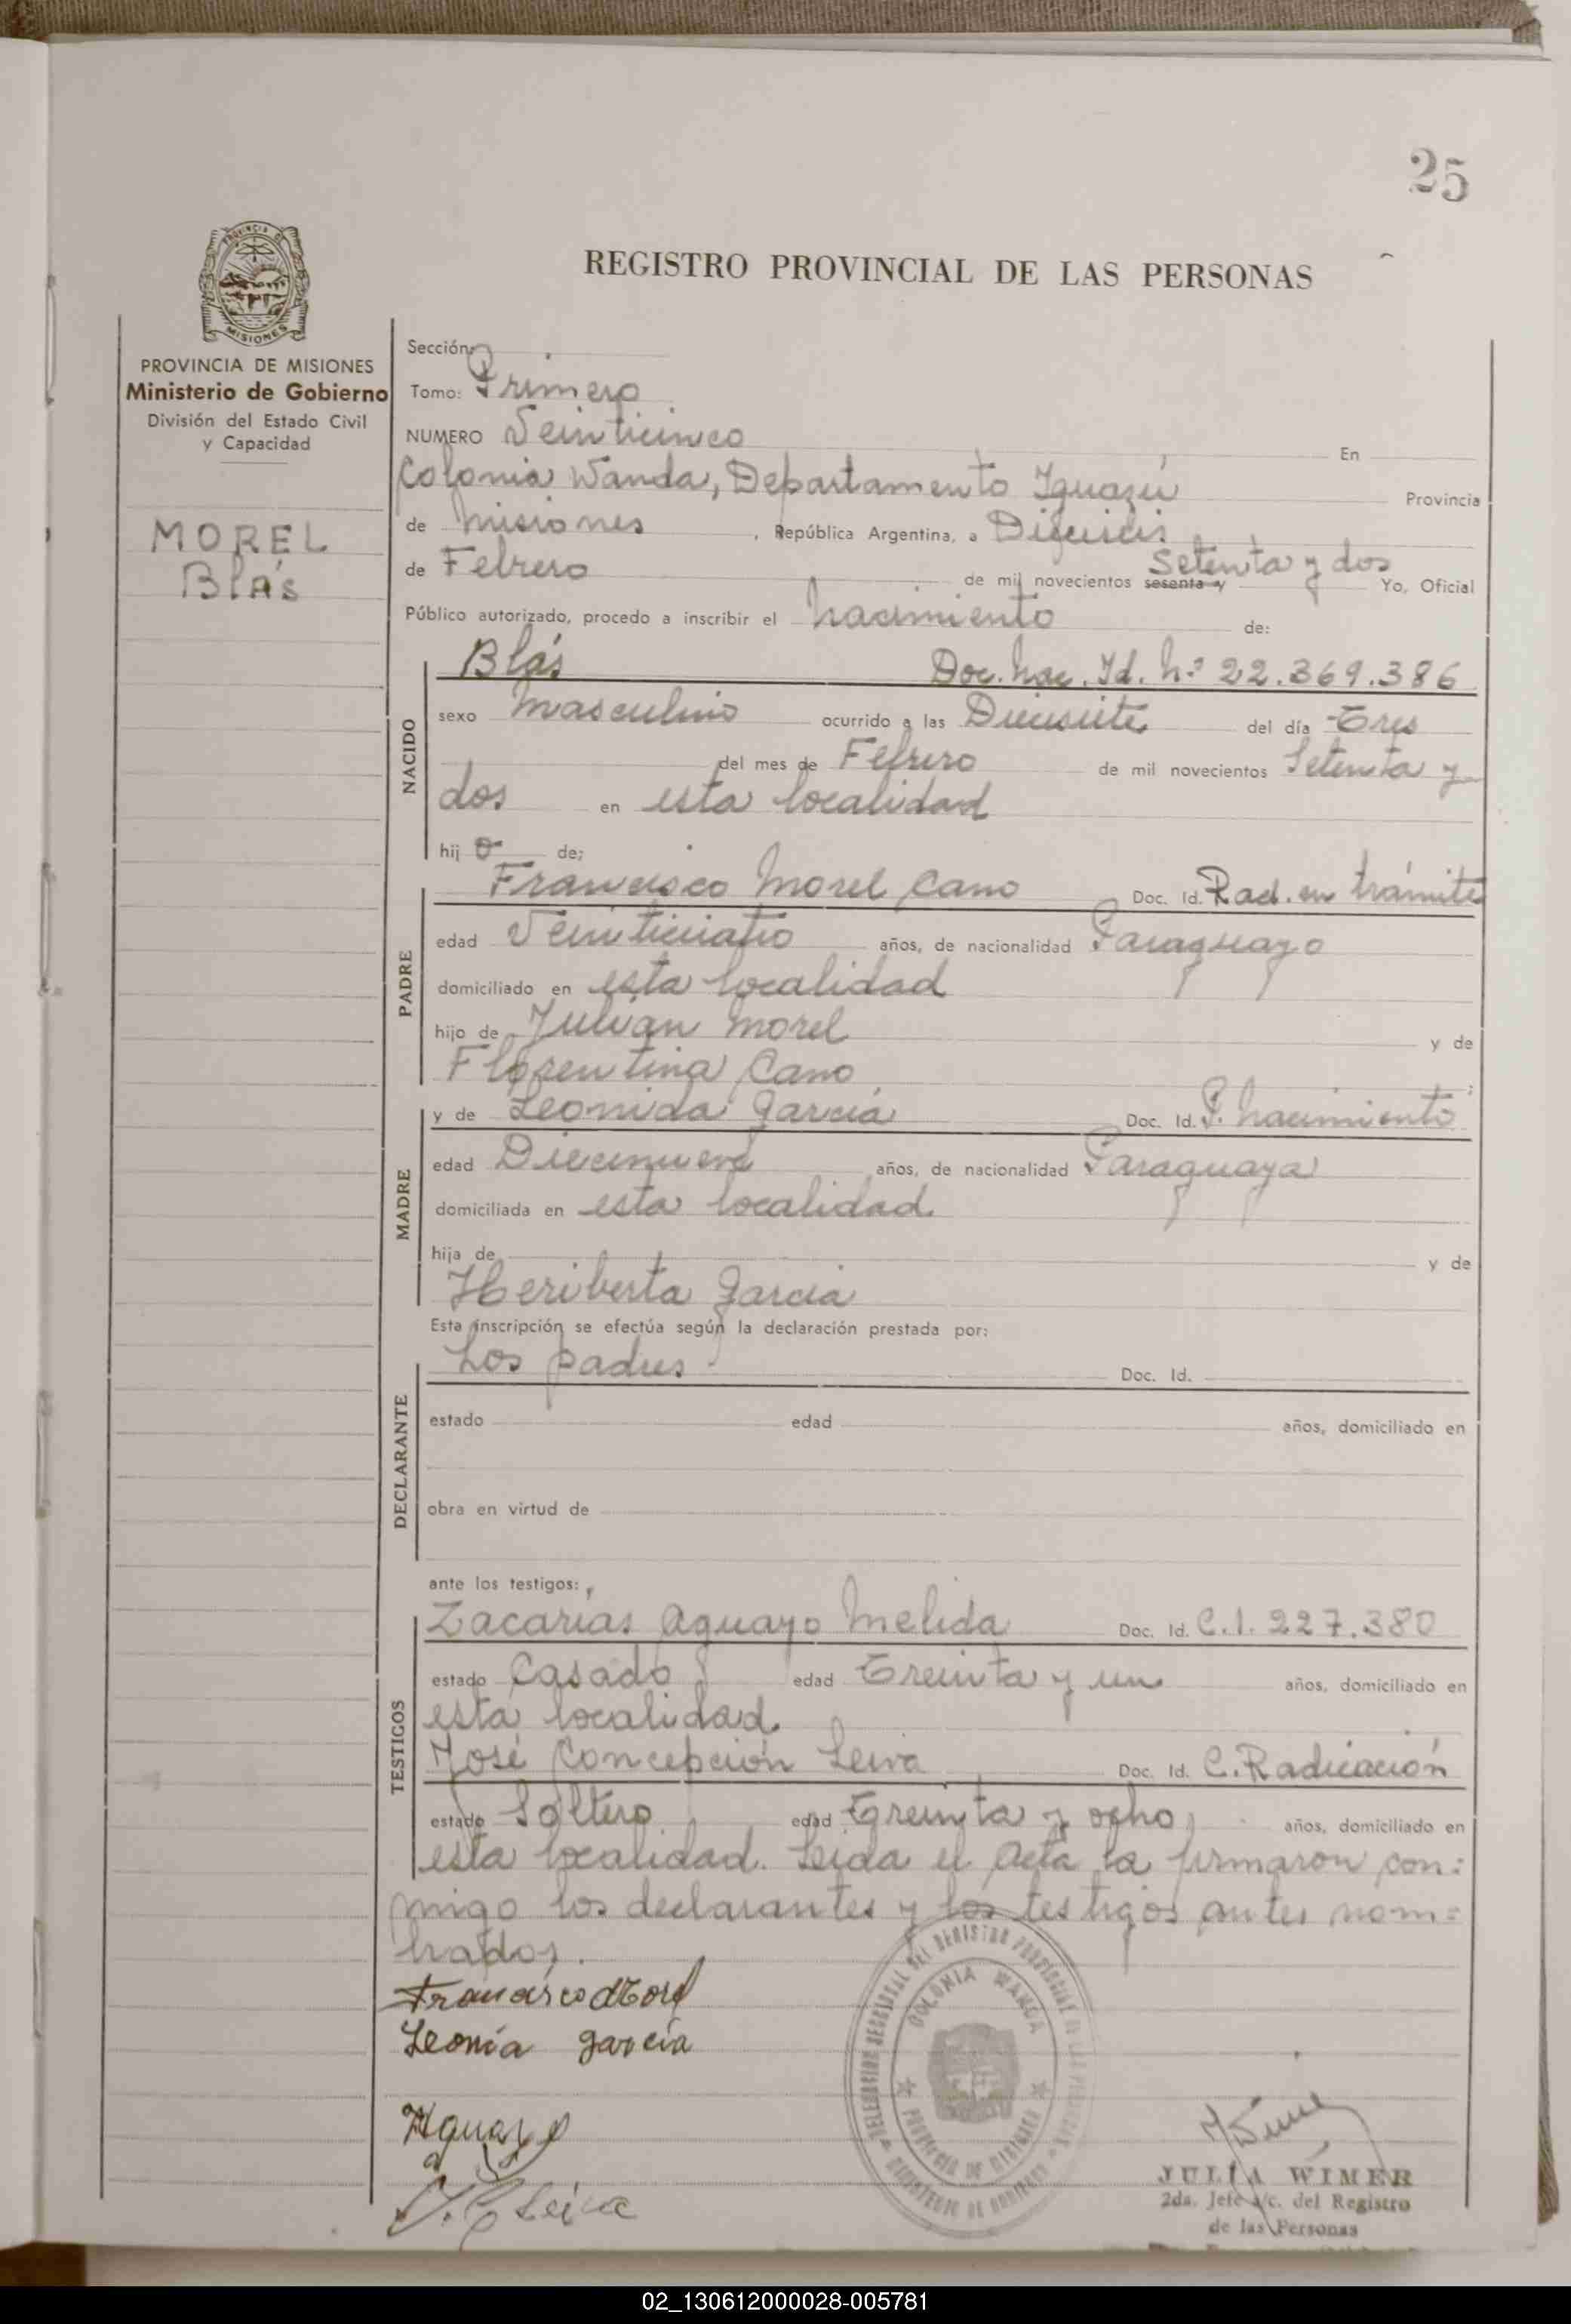 25
REGISTRO PROVINCIAL DE LAS PERSONAS
PROVINCIA DE MISIONES
Ministerio de Gobierno
División del Estado Civil
y Capacidad
MOREL
Blás
Sección:
Tomo: Primero
NUMERO Veinticinco En
Colonia Wanda, Departamento Iguazú Provincia
de Misiones, República Argentina, a Dieciseis
de Febrero de mil novecientos sesenta y Setenta y dos Yo, Oficial
Público autorizado, procedo a inscribir el Nacimiento de:
NACIDO
Blás Doc. Nac. Id. Nº 22.369.386
sexo Masculino ocurrido a las Diecisiete del día Tres
del mes de Febrero de mil novecientos Setenta y
dos en esta localidad
hijo de:
PADRE
Francisco Morel Cano Doc. Id. Rad. en trámite
edad Veinticuatro años, de nacionalidad Paraguayo
domiciliado en esta localidad
hijo de Julián Morel y de
Florentina Cano
MADRE
y de Leonida García Doc. Id. P. Nacimiento
edad Diecinueve años, de nacionalidad Paraguaya
domiciliada en esta localidad.
hija de y de
Heriberta Garcia
Esta inscripción se efectúa según la declaración prestada por:
DECLARANTE
Los padres Doc. Id.
estado edad años, domiciliado en
obra en virtud de
ante los testigos:
TESTIGOS
Zacarías Aguayo Melida Doc. Id. C.I. 227.380
estado Casado edad Treinta y un años, domiciliado en
esta localidad.
José Concepción Leiva Doc. Id. C. Radicación
estado Soltero edad Treinta y ocho años, domiciliado en
esta localidad. Leida el Acta la firmaron con=
migo los declarantes y los testigos antes nom=
brados.
Francisco Morel
Leonia garcía
Aguayo
J. C Leiva
DELEGACION SECCIONAL DEL REGISTRO PROVINCIAL DE LAS PERSONAS
MINISTERIO DE GOBIERNO
COLONIA WANDA
PROVINCIA DE MISIONES
JULIA WIMER
2da. Jefe a/c. del Registro
de las Personas
02_130612000028-005781